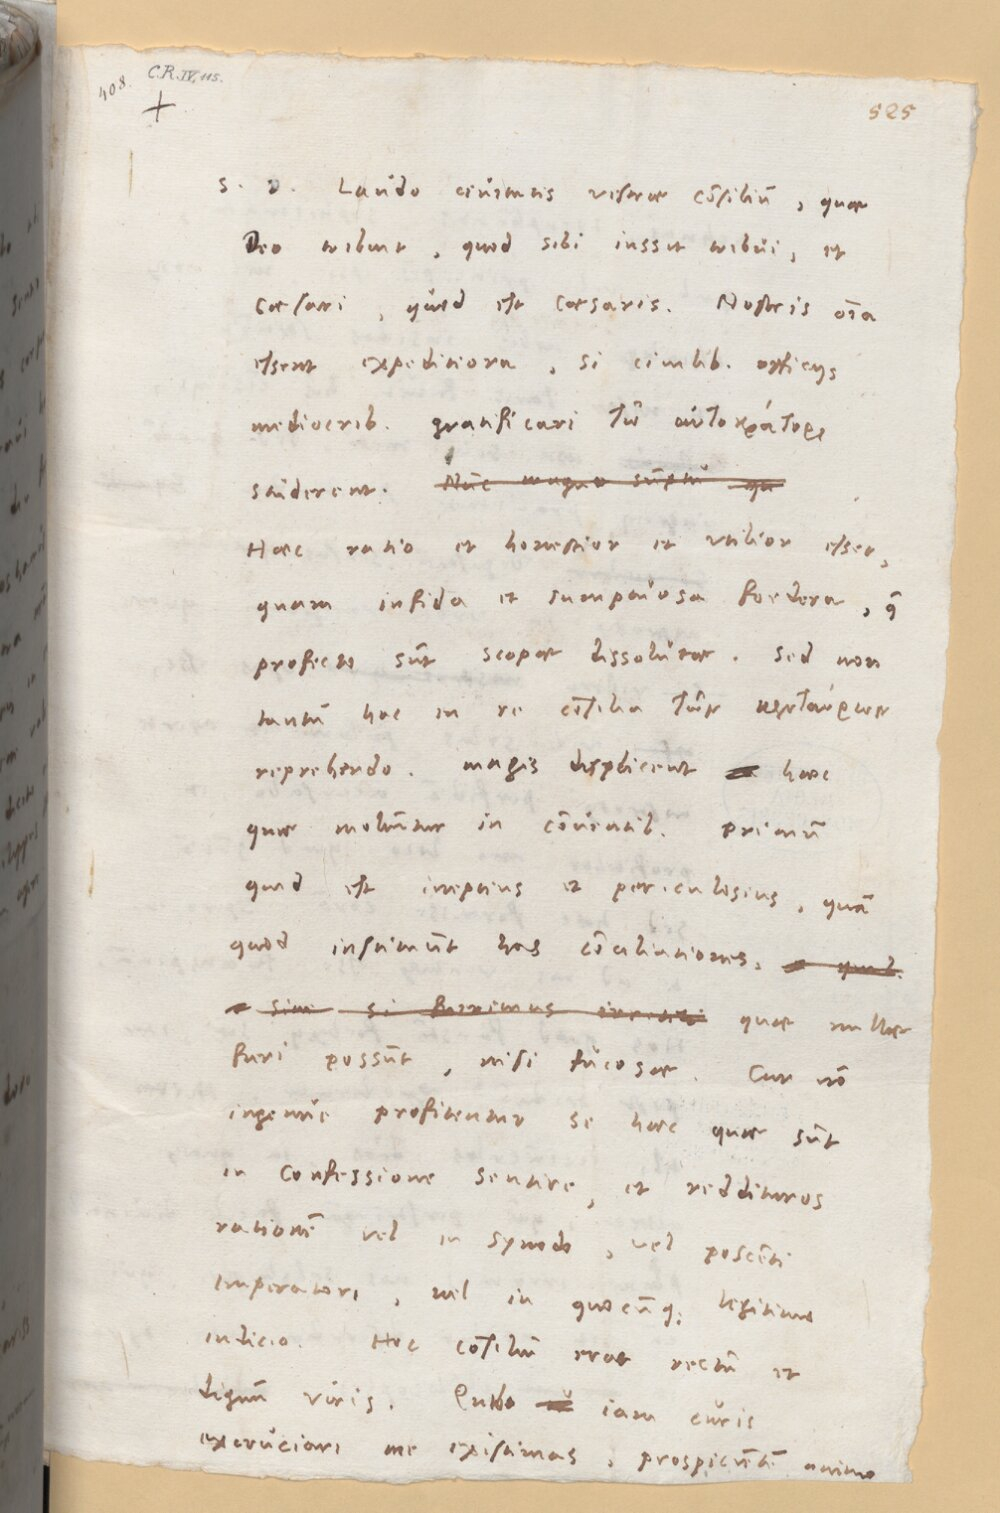 408.
C.R. IV, 115.
525
S. D. Laudo ciuitatis vestrae cōsiliū, quae
Deo tribuit, quod sibi iussit tribui, et
Caesari, quod est Caesaris. Nostris oīa
essent expeditiora, si ciuilib. officijs
mediocrib. gratificari τῷ αὐτοκράτορι
studerent. Nūc magno sūptu qu
Haec ratio et honestior et vtilior esset,
quam infida et sumptuosa foedera, q̄
profecto sūt scopae dissolutae. Sed non
tantū hac in re cōsilia τῶν
reprehendo. magis displicent haec
quae moliūtur in cōuentib. Primū
quid est ineptius et periculosius, quā
quod instituūt has cōciliationes, quae nullae
fieri possūt, nisi fucosae. Cur nō
ingenue profitentur se haec quae sūt
in Confessione sentire, et reddituros
rationē vel in synodo, vel poscēti
Imperatori, vel in quocūq; legitimo
iudicio. Hoc cōsiliū erat rectū et
dignū viris. Quibo iam curis
excruciari me existimas, prospiciētē animo